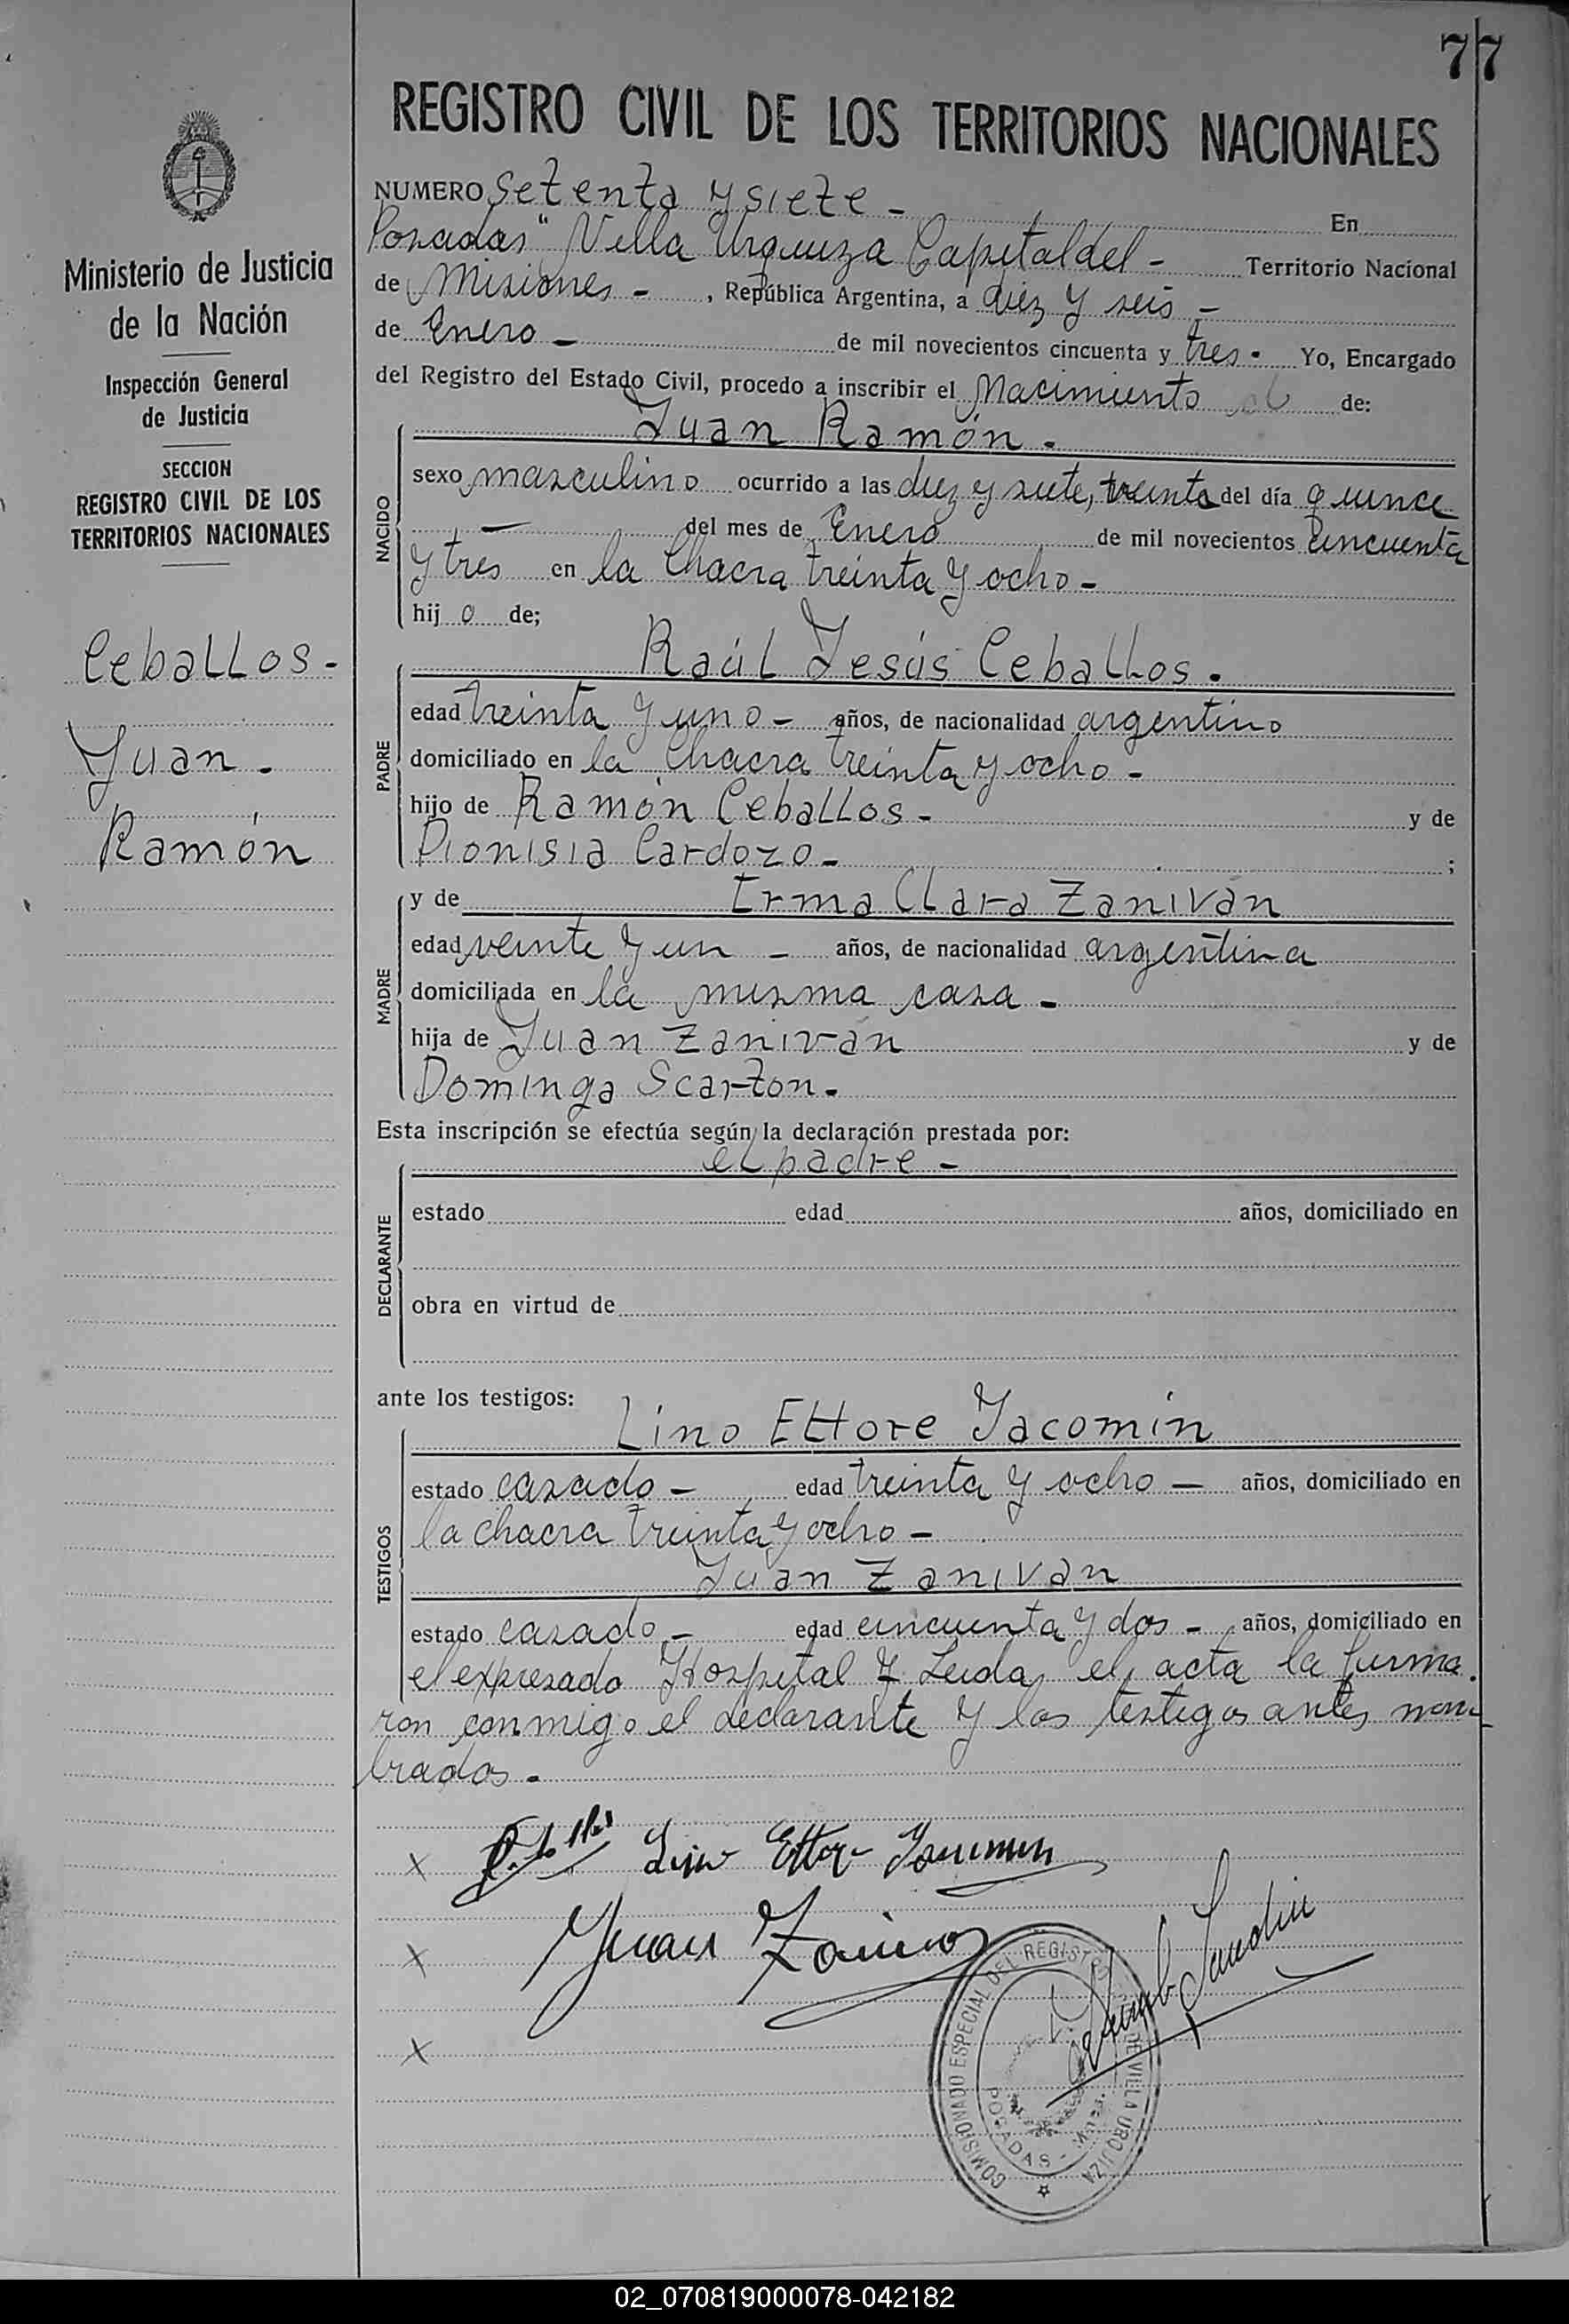 77
REGISTRO CIVIL DE LOS TERRITORIOS NACIONALES
Ministerio de Justicia
de la Nación
Inspección General
de Justicia
SECCION
REGISTRO CIVIL DE LOS
TERRITORIOS NACIONALES
Ceballos-
Juan.
Ramón
NUMERO Setenta y siete - En
Posadas" Villa Urquiza Capital del - Territorio Nacional
de Misiones - , República Argentina, a diez y seis -
de Enero - de mil novecientos cincuenta y tres. Yo, Encargado
del Registro del Estado Civil, procedo a inscribir el Nacimiento de:
Juan Ramón.
NACIDO
sexo masculino ocurrido a las diez y siete, treinta del día quince
- del mes de Enero de mil novecientos cincuenta
y tres en la Chacra treinta y ocho -
hij o de;
Raúl Jesús Ceballos.
PADRE
edad treinta y uno - años, de nacionalidad argentino
domiciliado en la Chacra treinta y ocho -
hijo de Ramón Ceballos - y de
Dionisia Cardozo - ;
y de Erma Clara Zaniván
MADRE
edad veinte y un - años, de nacionalidad argentina
domiciliada en la misma casa -
hija de Juan Zaniván y de
Dominga Scarton.
Esta inscripción se efectúa según la declaración prestada por:
el padre -
DECLARANTE
estado edad años, domiciliado en
obra en virtud de
ante los testigos:
Lino Ettore Jacomín
TESTIGOS
estado casado - edad treinta y ocho - años, domiciliado en
la chacra treinta y ocho -
Juan Zaniván
estado casado - edad cincuenta y dos - años, domiciliado en
el expresado Hospital y Leida el acta la firma.
ron conmigo el declarante y los testigos antes nom-
brados.
x Lino Ettore
x Juan
x
COMISIONADO ESPECIAL DEL REGISTRO DE VILLA URQUIZA
POSADAS - Mnes.
02_070819000078-042182